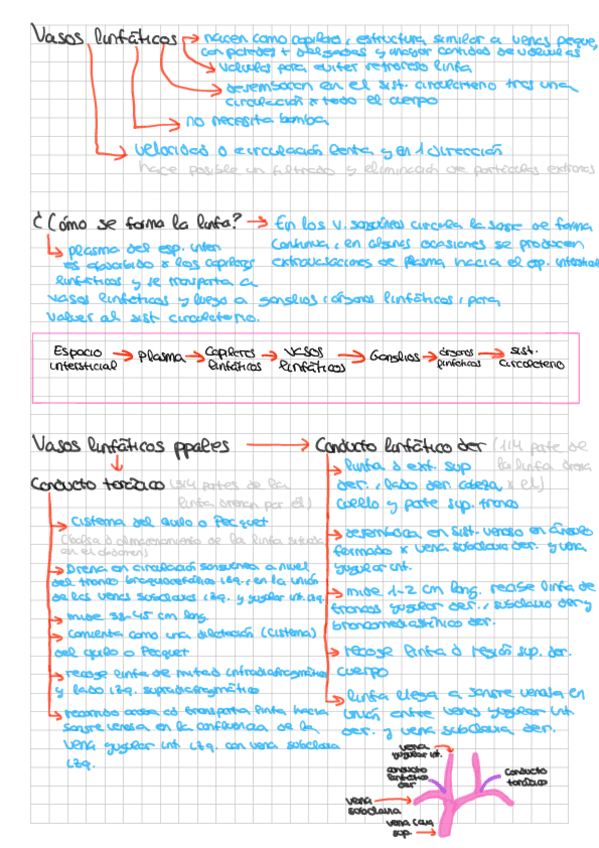 Vasos linfáticos → nacen como capilares, estructura similar a venas peque,
con paredes + delgadas y mayor cantidad de válvulas
→ válvulas para evitar retroceso linfa
→ desembocan en el sist. circulatorio tras una
circulación x todo el cuerpo
→ no necesita bomba
→ velocidad o circulación lenta y en 1 dirección
hace posible un filtrado y eliminación de partículas extrañas
¿Cómo se forma la linfa? → En los v. sanguíneos circula la sangre de forma
continua, en algunas ocasiones se producen
extravasaciones de plasma hacia el esp. intersticial
↳ plasma del esp. inter
es absorbido x los capilares
linfáticos y se transporta a
vasos linfáticos y luego a ganglios, órganos linfáticos, para
volver al sist. circulatorio.
Espacio intersticial → plasma → Capilares linfáticos → vasos linfáticos → Ganglios → órganos linfáticos → sist. circulatorio
Vasos linfáticos ppales → Conducto linfático der (1/4 parte de
la linfa drena
x el)
Conducto torácico (3/4 partes de la
linfa drenan por él)
→ cisterna del quilo o Pecquet
(bolsa d almacenamiento de la linfa situada
en el abdomen)
→ Drena en circulación sanguínea a nivel
del tronco braquiocefálico izq, en la unión
de las venas subclavia izq. y yugular int. izq
→ mide 38-45 cm long.
→ comienza como una dilatación (cisterna)
del quilo o Pecquet
→ recoge linfa de mitad infradiafragmática
y lado izq. supradiafragmático
→ transporta linfa hacia
sangre venosa en la confluencia de la
vena yugular int. izq. con vena subclavia
izq.
→ linfa d ext. sup
der., lado der. cabeza,
cuello y parte sup. tronco
→ desemboca en sist. venoso en ángulo
formado x vena subclavia der. y vena
yugular int.
→ mide 1-2 cm long. recoge linfa de
troncos yugular der., subclavio der y
broncomediastínico der.
→ recoge linfa d región sup. der.
cuerpo
→ linfa llega a sangre venosa en
unión entre venas yugular int.
der. y vena subclavia der.
vena
yugular int.
conducto
linfático
der
conducto
torácico
vena
subclavia
vena cava
sup.